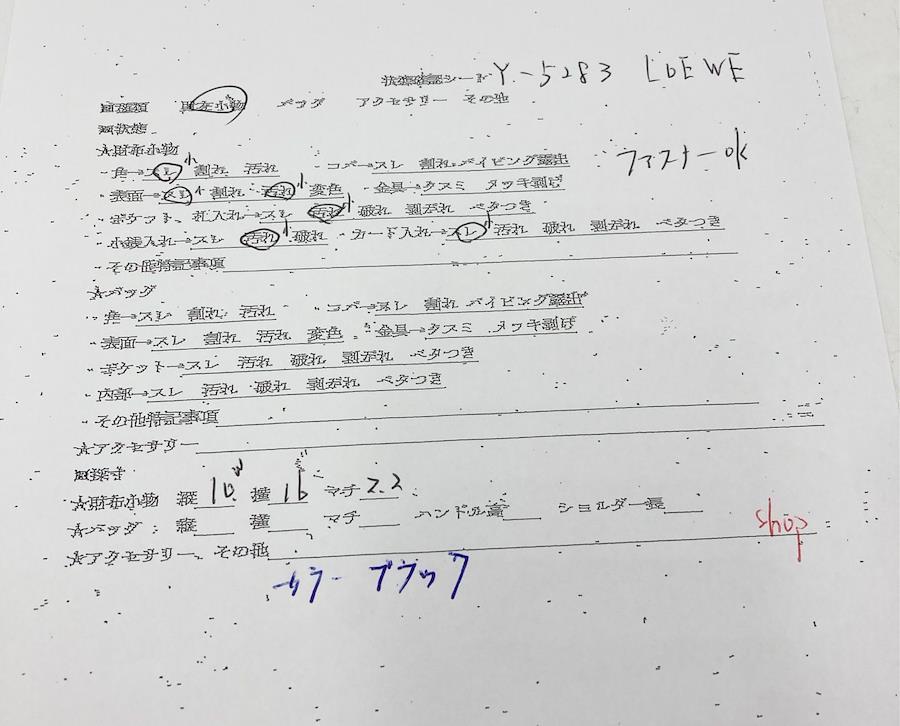 状態確認シート Y-5283 LOEWE
■種類 財布小物 バッグ アクセサリー その他
■状態
★財布小物
・角→スレ 小 割れ 汚れ ・コバ→スレ 割れ パイピング露出 ファスナーok
・表面→スレ 小 割れ 汚れ 小 変色 ・金具→クスミ メッキ剥げ
・ポケット、札入れ→スレ 汚れ 小 破れ 剥がれ ベタつき
・小銭入れ→スレ 汚れ 小 破れ ・カード入れ→スレ 小 汚れ 破れ 剥がれ ベタつき
・その他特記事項
★バッグ
・角→スレ 割れ 汚れ ・コバ→スレ 割れ パイピング露出
・表面→スレ 割れ 汚れ 変色 ・金具→クスミ メッキ剥げ
・ポケット→スレ 汚れ 破れ 剥がれ ベタつき
・内部→スレ 汚れ 破れ 剥がれ ベタつき
・その他特記事項
★アクセサリー
■採寸
★財布小物 縦 10 横 16 マチ 2.2
★バッグ：縦 横 マチ ハンドル高 ショルダー長
★アクセサリー、その他
shop
カラー ブラック